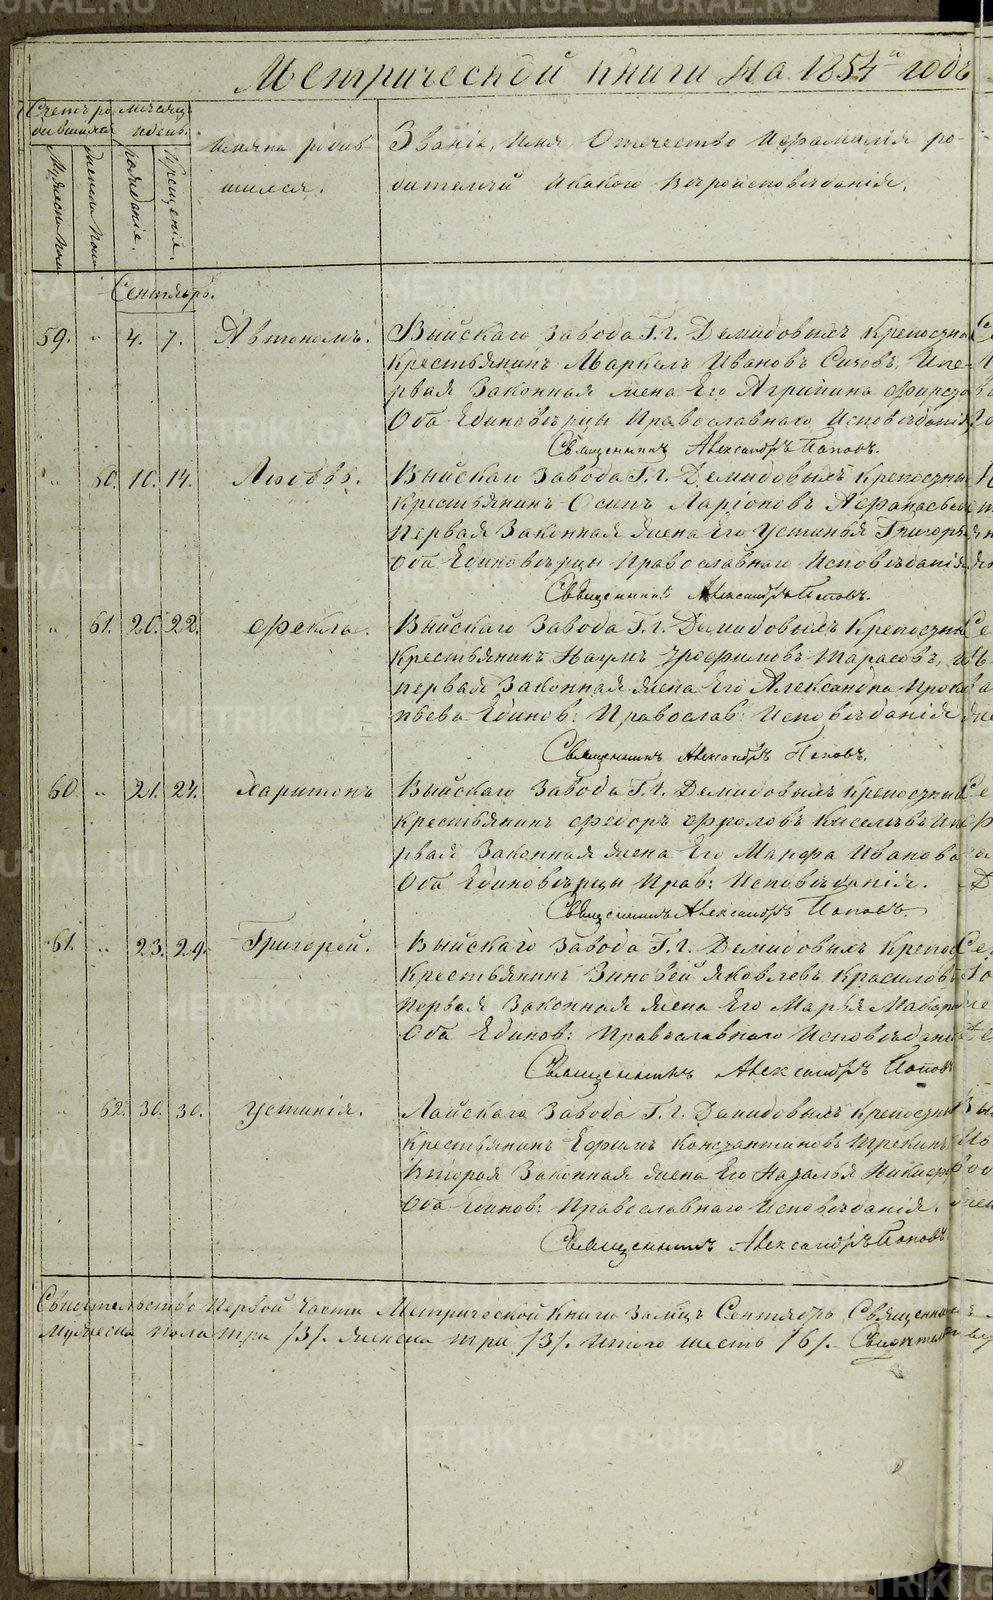 Метрической книги на 1854й годъ
Счетъ ро
дившихся
мѣсяцъ
и день.
Мужеска пола
Женска пола
рожденіе.
Крещеніе.
Имяна родив
шихся.
Званіе, Имя, Отечество И фамилія ро-
дителей и какого Вѣроисповѣданія.
Сентябрь.
59. „ 4. 7. Автономъ. Выйскаго Завода Г.г. Демидовыхъ крепостно
крестьянинъ Маркелъ Ивановъ Сизовъ, И пе-
рвая Законная жена Его Агрипина
Оба Единовѣрцы Православнаго Исповѣданія,
Священникъ Александръ Поповъ.
„ 60. 10. 14. Любовь. Выйскаго Завода Г.г. Демидовыхъ крепостны
Крестьянинъ Осипъ Ларіоновъ Афанасьев
Первая Законная жена Его Устинья Григорье
Оба Единовѣрцы Православнаго Исповѣданія
Священникъ Александръ Поповъ.
„ 61. 20. 22. Фекла. Выйскаго Завода Г.г. Демидовыхъ Крепостны
Крестьянинъ Наумъ Трофимовъ Тарасовъ, и
первая Законная жена Его Александра Проко
пьева Единов: Православ: Исповѣданія
Священникъ Александръ Поповъ.
60 „ 21. 24. Харитонъ Выйскаго Завода Г.г. Демидовыхъ крепостны
крестьянинъ Федоръ Фроловъ Киселевъ И пе
рвая Законная жена Его Марфа Иванова
Оба Единовѣрцы Прав: Исповѣданія.
Священникъ Александръ Поповъ.
61. „ 23. 29. Григорей. Выйскаго Завода Г.г. Демидовыхъ Крепос
Крестьянинъ Зиновей Яковлевъ Красилов
Первая Законная жена Его Марья Макаро
Оба Единов: Православнаго Исповѣдані
Священникъ Александръ Поповъ
„ 62. 30. 30. Устинія. Лайскаго Завода Г.г. Демидовыхъ Крепостны
крестьянинъ Ефимъ Константиновъ
Вторая Законная жена Его Наталья Никиф
Оба Единов: Православнаго Исповѣданія.
Священникъ Александръ Поповъ
Свидѣтельство Первой Части Метрической Книги За мцъ Сентябрь Священник
Мужеска пола три /3/. женска три /3/. Итого шесть /6/.
METRIKI.GASO-URAL.RU